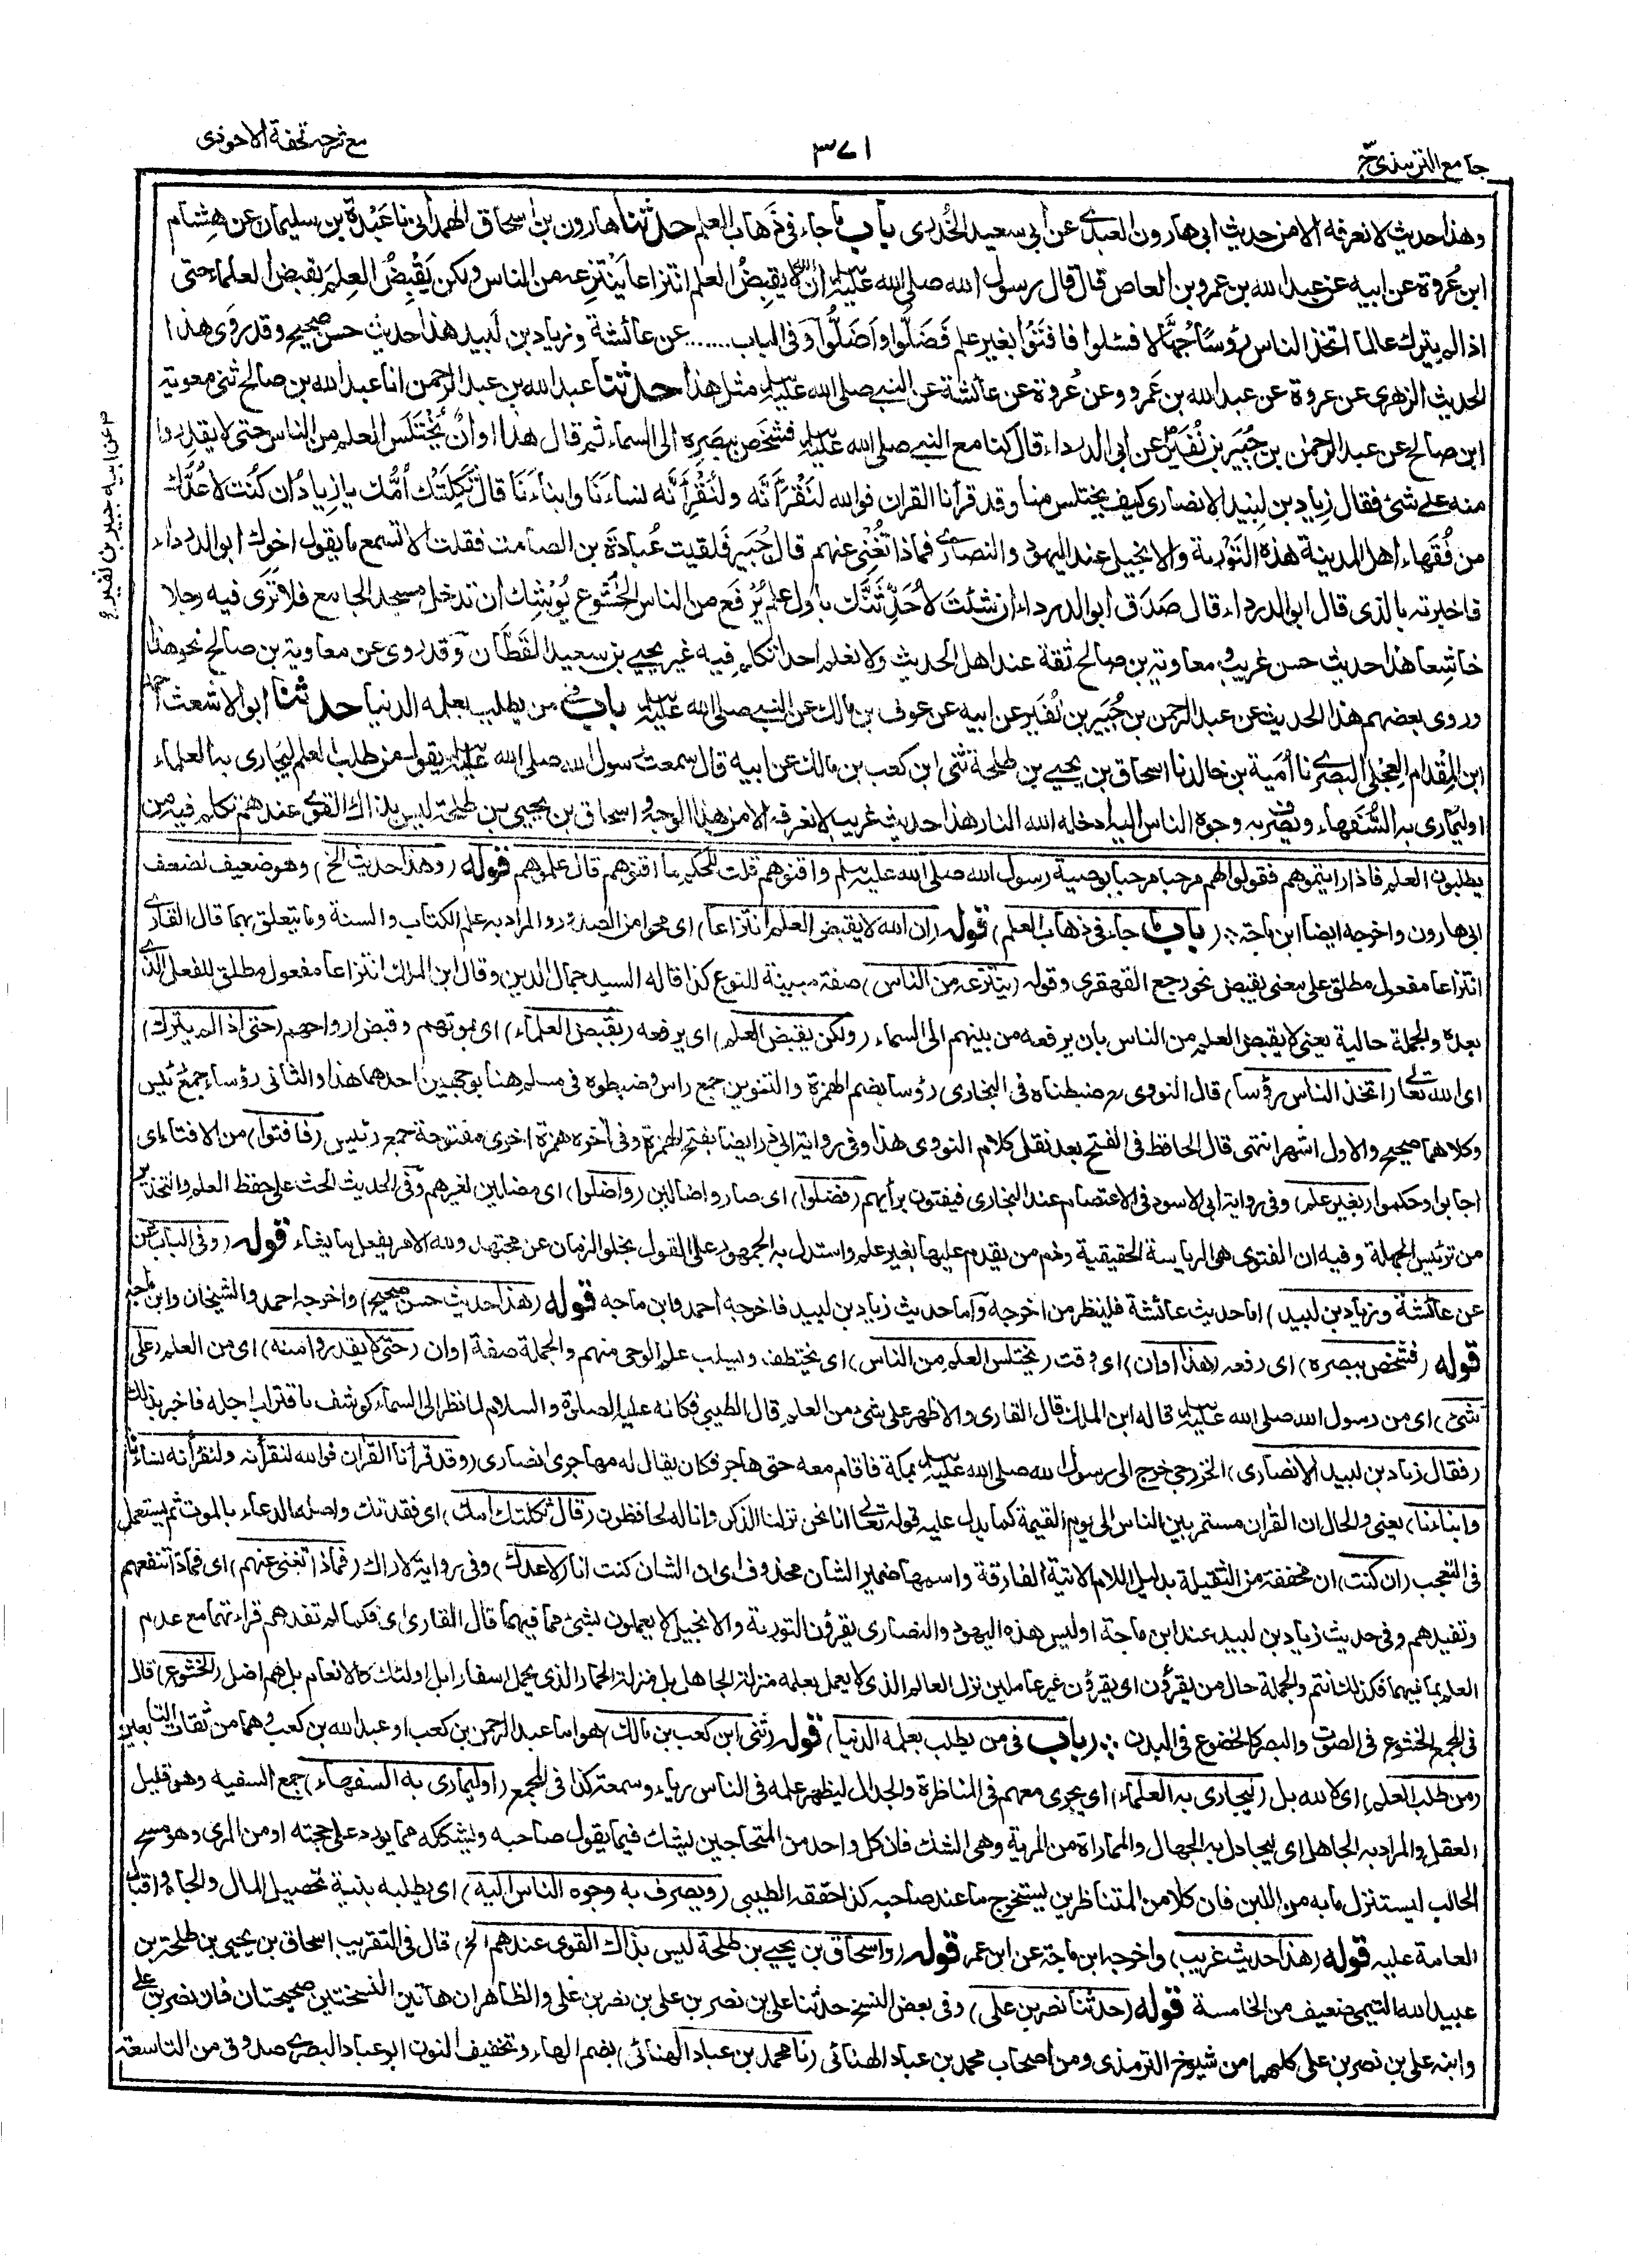 جامع الترمذي ج
٣٧١
مع شرحه تحفة الاحوذى
وهذا حديث لا نعرفه الا من حديث ابي هارون العبدى عن أبي سعيد الخُدرى باب ما جاء في ذَهاب العلم حدثنا هارون بن اسحاق الهمدانى نا عَبْدة بن سليمان عن هِشام
ابن عُروة عن ابيه عن عبد الله بن عمرو بن العاص قال قال رسول الله صلى الله عليه وسلم ان الله لا يقبِضُ العلم انتزاعا يَنْتزِعه من الناس ولكن يَقْبِضُ العِلمَ بقبض العلماء حتى
اذا لم يترك عالما اتخذ الناس رؤسًا جُهَّالا فسُئلوا فافتَوْا بغير علم فَضَلُّوا وَاَضَلُّوا وفى الباب....... عن عائشة وزياد بن لَبيد هذا حديث حسن صحيح وقد رَوى هذا
الحديث الزهرى عن عروة عن عبد الله بن عَمرو وعن عُروة عن عائشة عن النبي صلى الله عليه وسلم مثل هذا حدثنا عبد الله بن عبد الرحمن انا عبد الله بن صالح ثنى معوية
ابن صالح عن عبد الرحمٰن بن جُبَير بن نُفَيْر عن ابى الدرداء قال كنا مع النبي صلى الله عليه وسلم فشَخَص ببَصَرِه الى السماء ثم قال هذا اوانٌ يُخْتَلَس العلم من الناس حتى لا يقدِروا
منه على شئ فقال زِياد بن لَبيد الانصارى كيف يختلس منا وقد قرأنا القران فوالله لنَقْرَأَنَّه ولَنُقْرِأَنَّه نساءَنَا وابناءَنَا قال ثَكِلَتْك اُمُّك يا زِيادُ ان كُنت لاَعُدُّك
من فُقَهاء اهل المدينة هذه التَوْرٰية والانجيل عند اليهود والنصارى فماذا تُغْنِى عنهم قال جُبَير فَلقيت عُبادَة بن الصامت فقلت الا تسمع ما يقول اخوك ابو الدرداء
فاخبرته بالذى قال ابو الدرداء قال صَدَق ابو الدرداء ان شئتَ لأُحَدِّثَنَّك باول علم يُرْفَع من الناس الخُشوع يُوْشِك ان تدخل مسجد الجامع فلا تَرى فيه رجلا
خاشِعا هذا حديث حسن غريب ومعاوية بن صالح ثقة عند اهل الحديث ولا نعلم احدا تكلم فيه غير يحيى بن سعيد القَطَّان وقد روى عن معاوية بن صالح نحو هذا
وروى بعضهم هذا الحديث عن عبد الرحمن بن جُبَير بن نُفَير عن ابيه عن عوف بن مالك عن النبي صلى الله عليه وسلم باب فى من يطلب بعلمه الدنيا حدثنا ابو الاشعث احمد
ابن المِقْدام العِجْلى البَصرى نا اُمَية بن خالد نا اسحاق بن يحيى بن طلحة ثنى ابن كعب بن مالك عن ابيه قال سمعت رسول الله صلى الله عليه وسلم يقول من طلب العلم ليُجارى به العلماء
او ليُمارى به السُّفَهاء ويَصْرِف به وجوه الناس اليه ادخله الله النار هذا حديث غريب لا نعرفه الا من هذا الوجه واسحاق بن يحيى بن طلحة ليس بذاك القوى عندهم تكلم فيه من
عن ابيه جبير بن نفير
يطلبون العلم فاذا رايتموهم فقولوا لهم مرحبا مرحبا بوصية رسول الله صلى الله عليه وسلم واقنوهم قلت للحكم ما اقنوهم قال علموهم قوله (وهذا حديث الخ) وهو ضعيف لضعف
ابى هارون واخرجه ايضا ابن ماجة ؞ (باب ما جاء فى ذهاب العلم) قوله (ان الله لا يقبض العلم انتزاعا) اى محوا من الصدور والمراد به علم الكتاب والسنة وما يتعلق بهما قال القارى
انتزاعا مفعول مطلق على معنى يقبض نحو رجع القهقرى وقوله (ينتزعه من الناس) صفة مبينة للنوع كذا قاله السيد جمال الدين وقال ابن الملك انتزاعا مفعول مطلق للفعل الذى
بعده والجملة حالية يعنى لا يقبض العلم من الناس بان يرفعه من بينهم الى السماء (ولكن يقبض العلم) اى يرفعه (بقبض العلماء) اى بموتهم وقبض ارواحهم (حتى اذا لم يترك)
اى الله تعالى (اتخذ الناس رؤسا) قال النووى ضبطناه فى البخارى رؤسا بضم الهمزة والتنوين جمع راس وضبطوه فى مسلم هنا بوجهين احدهما هذا والثانى رؤساء جمع رئيس
وكلاهما صحيح والاول اشهر انتهى قال الحافظ فى الفتح بعد نقل كلام النووى هذا وفى رواية ابى ذر ايضا بفتح الهمزة وفى آخره همزة اخرى مفتوحة جمع رئيس (فافتوا) من الافتاء اى
اجابوا وحكموا (بغير علم) وفى رواية ابى الاسود فى الاعتصام عند البخارى فيفتون برأيهم (فضلوا) اى صاروا ضالين (واضلوا) اى مضلين لغيرهم وفى الحديث الحث على حفظ العلم والتحذير
من ترئيس الجهلة وفيه ان الفتوى هى الرياسة الحقيقية وذم من يقدم عليها بغير علم واستدل به الجمهور على القول بخلو الزمان عن مجتهد ولله الامر يفعل ما يشاء قوله (وفى الباب عن
عن عائشة وزياد بن لبيد) اما حديث عائشة فلينظر من اخرجه واما حديث زياد بن لبيد فاخرجه احمد وابن ماجه قوله (هذا حديث حسن صحيح) واخرجه احمد والشيخان وابن ماجه
قوله (فشخص ببصره) اى رفعه (هذا اوان) اى وقت (يختلس العلم من الناس) اى يختطف ويسلب علم الوحى منهم والجملة صفة اوان (حتى لا يقدروا منه) اى من العلم (على
شئ) اى من رسول الله صلى الله عليه وسلم قاله ابن الملك قال القارى والاظهر على شئ من العلم قال الطيبى فكانه عليه الصلوة والسلام لما نظر الى السماء كوشف باقتراب اجله فاخبر بذلك
(فقال زياد بن لبيد الانصارى) الخزرجى خرج الى رسول الله صلى الله عليه وسلم بمكة فاقام معه حتى هاجر فكان يقال له مهاجرى انصارى (وقد قرأنا القرأن فوالله لنقرأنه ولنقرأنه نساءنا
وابناءنا) يعنى والحال ان القرأن مستمر بين الناس الى يوم القيمة كما يدل عليه قوله تعالى انا نحن نزلنا الذكر وانا له لحافظون (قال ثكلتك امك) اى فقدتك واصله الدعاء بالموت ثم يستعمل
فى التعجب (ان كنت) ان مخففة من الثقيلة بدليل اللام الاتية الفارقة واسمها ضمير الشان محذوف اى ان الشان كنت انا (لاعدك) وفى رواية لاراك (فماذا تغنى عنهم) اى فماذا تنفعهم
وتفيدهم وفى حديث زياد بن لبيد عند ابن ماجة اوليس هذه اليهود والنصارى يقرؤن التورية والانجيل لا يعملون بشئ مما فيهما قال القارى اى فكما لم تفدهم قراءتهما مع عدم
العلم بما فيهما فكذلك انتم والجملة حال من يقرؤن اى يقرؤن غير عاملين نزل العالم الذى لا يعمل بعلمه منزلة الجاهل بل منزلة الحمار الذى يحمل اسفارا بل اولئك كالانعام بل هم اضل (الخشوع) قال
فى المجمع الخشوع فى الصوت والبصر كالخضوع فى البدن ؞ (باب فى من يطلب بعلمه الدنيا) قوله (ثنى ابن كعب بن مالك) هو اما عبد الرحمن بن كعب او عبد الله بن كعب وهما من ثقات التابعين
(من طلب العلم) اى لا لله بل (ليجارى به العلماء) اى يجرى معهم فى المناظرة والجدال ليظهر علمه فى الناس رياء وسمعة كذا فى المجمع (او ليمارى به السفهاء) جمع السفيه وهو قليل
العقل والمراد به الجاهل اى ليجادل به الجهال والمماراة من المرية وهى الشك فان كل واحد من المتحاجين يشك فيما يقول صاحبه ويشككه مما يورد على حجته او من المرى وهو مسح
الحالب ليستنزل ما به من اللبن فان كلا من المتناظرين يستخرج ما عند صاحبه كذا حققه الطيبى (ويصرف به وجوه الناس اليه) اى يطلبه بنية تحصيل المال والجاه واقبال
العامة عليه قوله (هذا حديث غريب) واخرجه ابن ماجة عن ابن عمر قوله (واسحاق بن يحيى بن طلحة ليس بذاك القوى عندهم الخ) قال فى التقريب اسحاق بن يحيى بن طلحة بن
عبيد الله التيمى ضعيف من الخامسة قوله (حدثنا نصر بن على) وفى بعض النسخ حدثنا على بن نصر بن على والظاهر ان هاتين النسختين صحيحتان فان نصر بن على
وابنه على بن نصر بن على كليهما من شيوخ الترمذى ومن اصحاب محمد بن عباد الهنائى (نا محمد بن عباد الهنائى) بضم الهاء وتخفيف النون ابو عباد البصرى صدوق من التاسعة